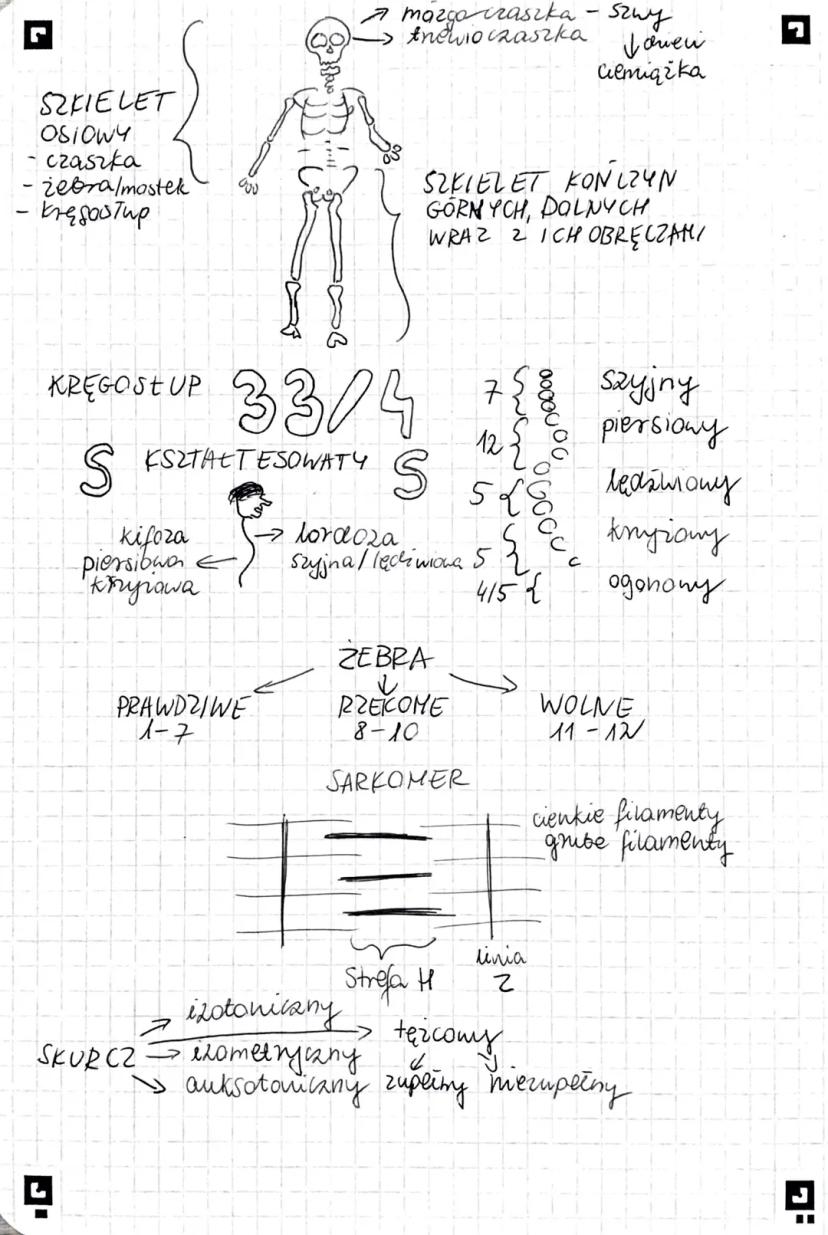 mózgoczaszka - szwy
trzewioczaszka
↓ dzieci
ciemiączka
SZKIELET
OSIOWY
- czaszka
- żebra/mostek
- kręgosłup
SZKIELET KOŃCZYN
GÓRNYCH, DOLNYCH
WRAZ Z ICH OBRĘCZAMI
KRĘGOSŁUP 33/4
S KSZTAŁT ESOWATY S
kifoza
piersiowa
krzyżowa
lordoza
szyjna/lędźwiowa
7 szyjny
12 piersiowy
5 lędźwiowy
5 krzyżowy
4/5 ogonowy
ŻEBRA
PRAWDZIWE
1-7
RZEKOME
8-10
WOLNE
11-12
SARKOMER
cienkie filamenty
grube filamenty
Strefa H
linia
Z
SKURCZ
izotoniczny
tężcowy
izometryczny
auksotoniczny
zupełny niezupełny